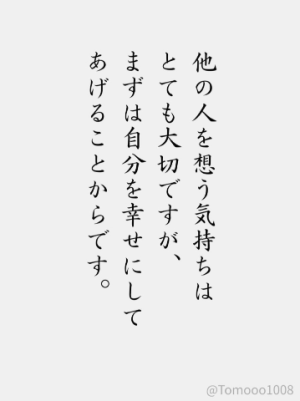 他の人を想う気持ちは
とても大切ですが、
まずは自分を幸せにして
あげることからです。
@Tomooo1008